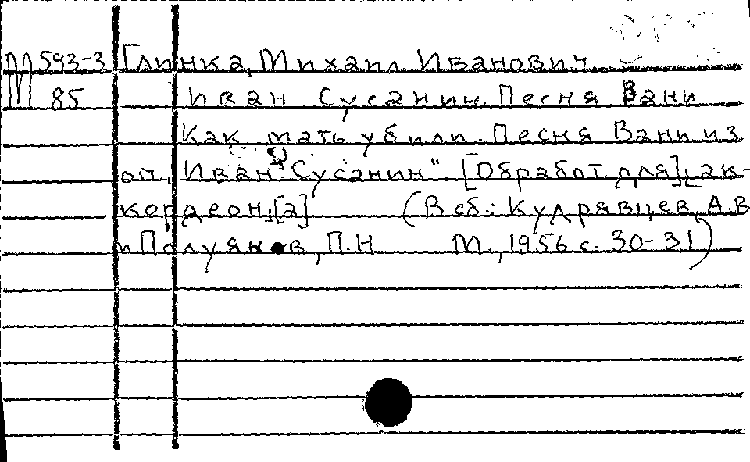 М 593-3 Глинка, Михаил Иванович
85 Иван Сусанин. Песня Вани
Как мать убили. Песня Вани из
оп. "Иван Сусанин". [Обработ для] ак-
кордеон[а] (В сб.: Кудрявцев, А.В
и Полуянов, П.Н М., 1956 с. 30-31)